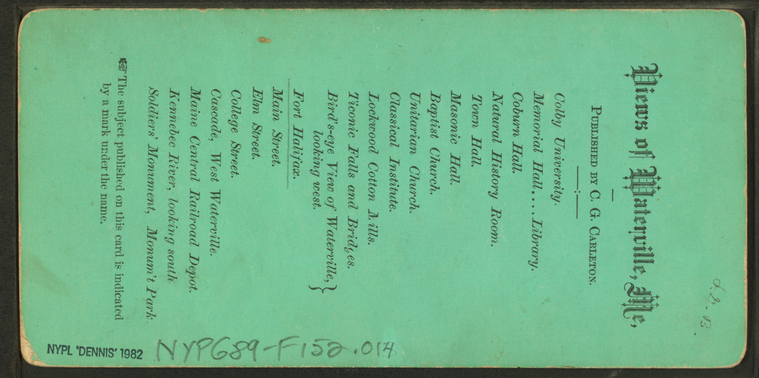 Views of Waterville, Me,
PUBLISHED BY C. G. CARLETON.
Colby University.
Memorial Hall....Library.
Coburn Hall.
Natural History Room.
Town Hall.
Masonic Hall.
Baptist Church.
Unitarian Church.
Classical Institute.
Lockwood Cotton Mills.
Ticonic Falls and Bridges.
Bird's-eye View of Waterville, }
looking west.
Fort Halifax.
Main Street.
Elm Street.
College Street.
Cascade, West Waterville.
Maine Central Railroad Depot.
Kennebec River, looking south
Soldiers' Monument, Monum't Park
☞ The subject published on this card is indicated
by a mark under the name.
NYPL 'DENNIS' 1982
NYPG89-F152.014